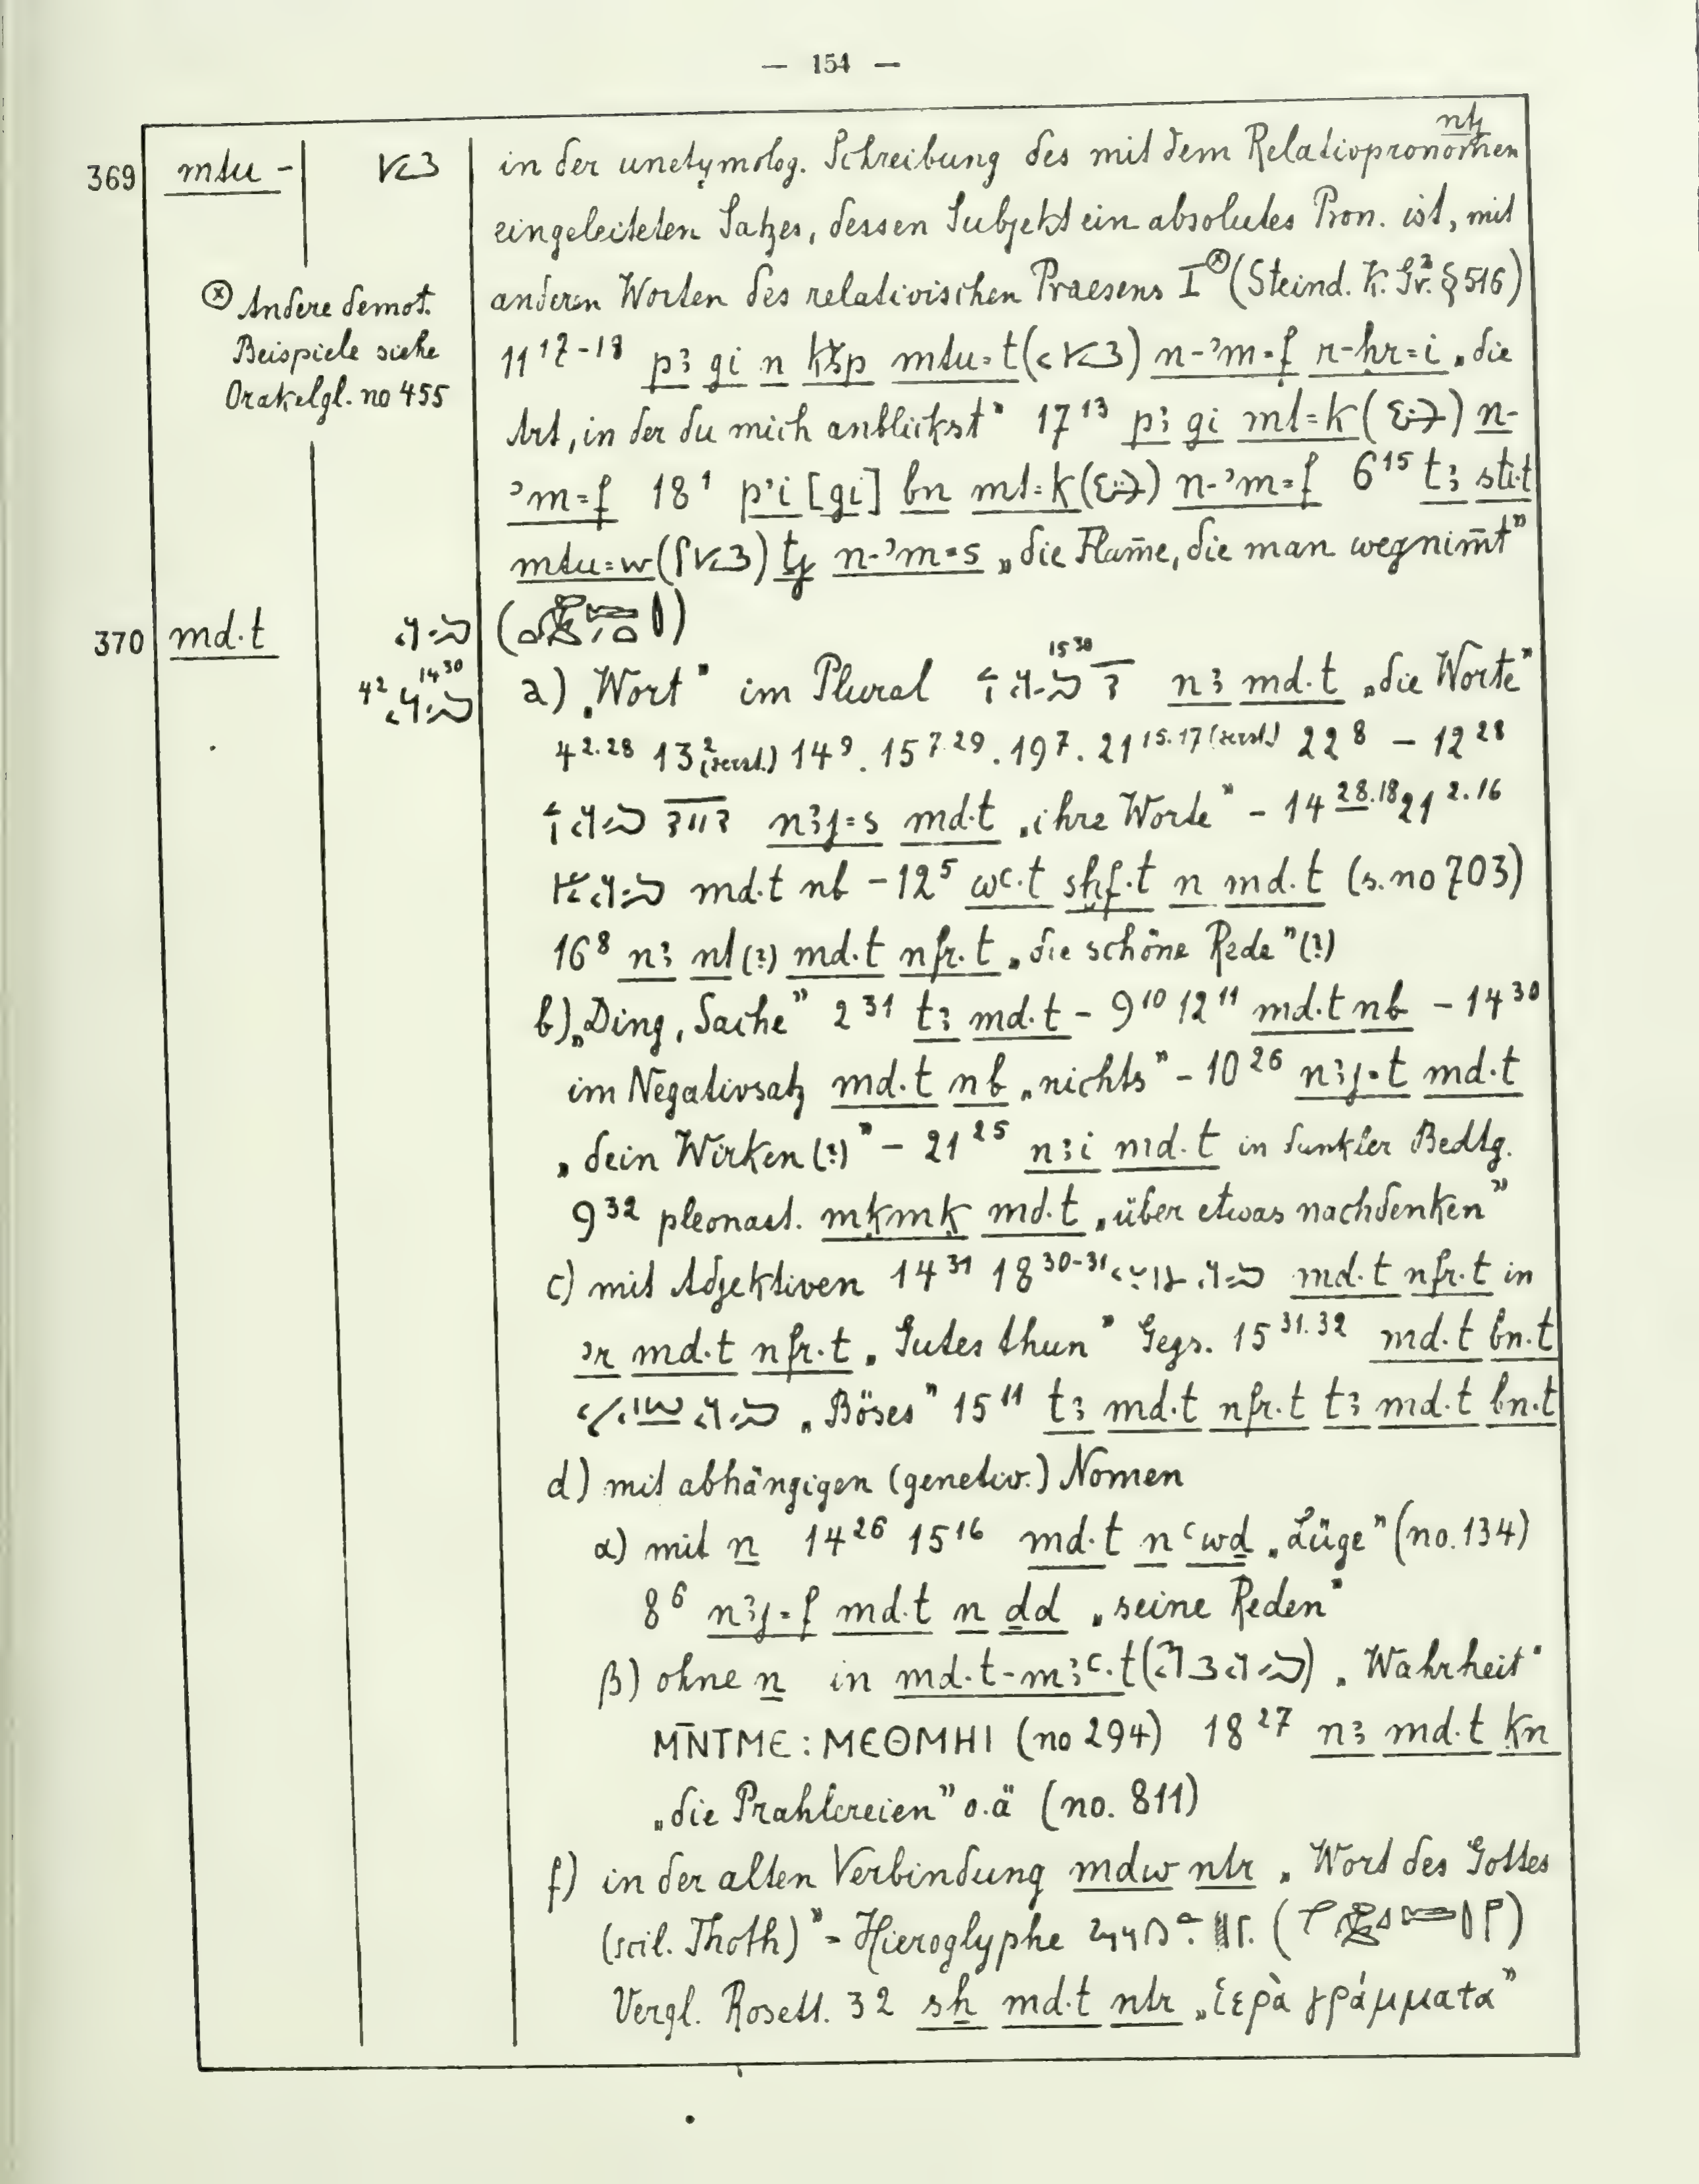 — 154 —
369 mtu - in der unetymolog. Schreibung des mit dem Relativpronomen ntj
eingeleiteten Satzes, dessen Subjekt ein absolutes Pron. ist, mit
anderen Worten des relativischen Praesens I ⊗ (Steind. K. Gr.² § 516)
⊗ Andere demot.
Beispiele siehe
Orakelgl. no 455
11 17-18 pꜣ gi n kšp mtu=t ( ) n-ʾm=f r-ḥr=i „die
Art, in der du mich anblickst” 17 13 pꜣ gi mt=k ( ) n-
ʾm=f 18 1 pʾi [gi] bn mt=k ( ) n-ʾm=f 6 15 tꜣ stj.t
mtu=w ( ) tj n-ʾm=s „die Flam̄e, die man wegnim̄t”
370 md.t
4 2 14 30
a) „Wort” im Plural 15 30 nꜣ md.t „die Worte”
4 2.28 13 2 (zerst.) 14 9. 15 7.29. 19 7. 21 15.17 (zerst.) 22 8 – 12 28
nꜣj=s md.t „ihre Worte” – 14 28.18 21 2.16
md.t nb – 12 5 wꜥ.t sḫf.t n md.t (s. no 703)
16 8 nꜣ nt (?) md.t nfr.t „die schöne Rede” (?)
b) „Ding, Sache” 2 31 tꜣ md.t – 9 10 12 11 md.t nb – 14 30
im Negativsatz md.t nb „nichts” – 10 26 nꜣj=t md.t
„dein Wirken (?)” – 21 25 nꜣi md.t in dunkler Bedtg.
9 32 pleonast. mḳmḳ md.t „über etwas nachdenken”
c) mit Adjektiven 14 31 18 30-31 md.t nfr.t in
ʾr md.t nfr.t „Gutes thun” Gegs. 15 31.32 md.t bn.t
„Böses” 15 11 tꜣ md.t nfr.t tꜣ md.t bn.t
d) mit abhängigen (genetiv.) Nomen
α) mit n 14 26 15 16 md.t n ꜥwḏ „Lüge” (no. 134)
8 6 nꜣj=f md.t n ḏd „seine Reden”
β) ohne n in md.t-mꜣꜥ.t ( ) „Wahrheit”
ⲘN̄ⲦⲘⲈ : ⲘⲈⲐⲘⲎⲒ (no 294) 18 27 nꜣ md.t ḳn
„die Prahlereien” o.ä (no. 811)
f) in der alten Verbindung mdw ntr „Wort des Gottes
(scil. Thoth)” = Hieroglyphe
Vergl. Rosett. 32 sẖ md.t ntr „ἱερὰ γράμματα”